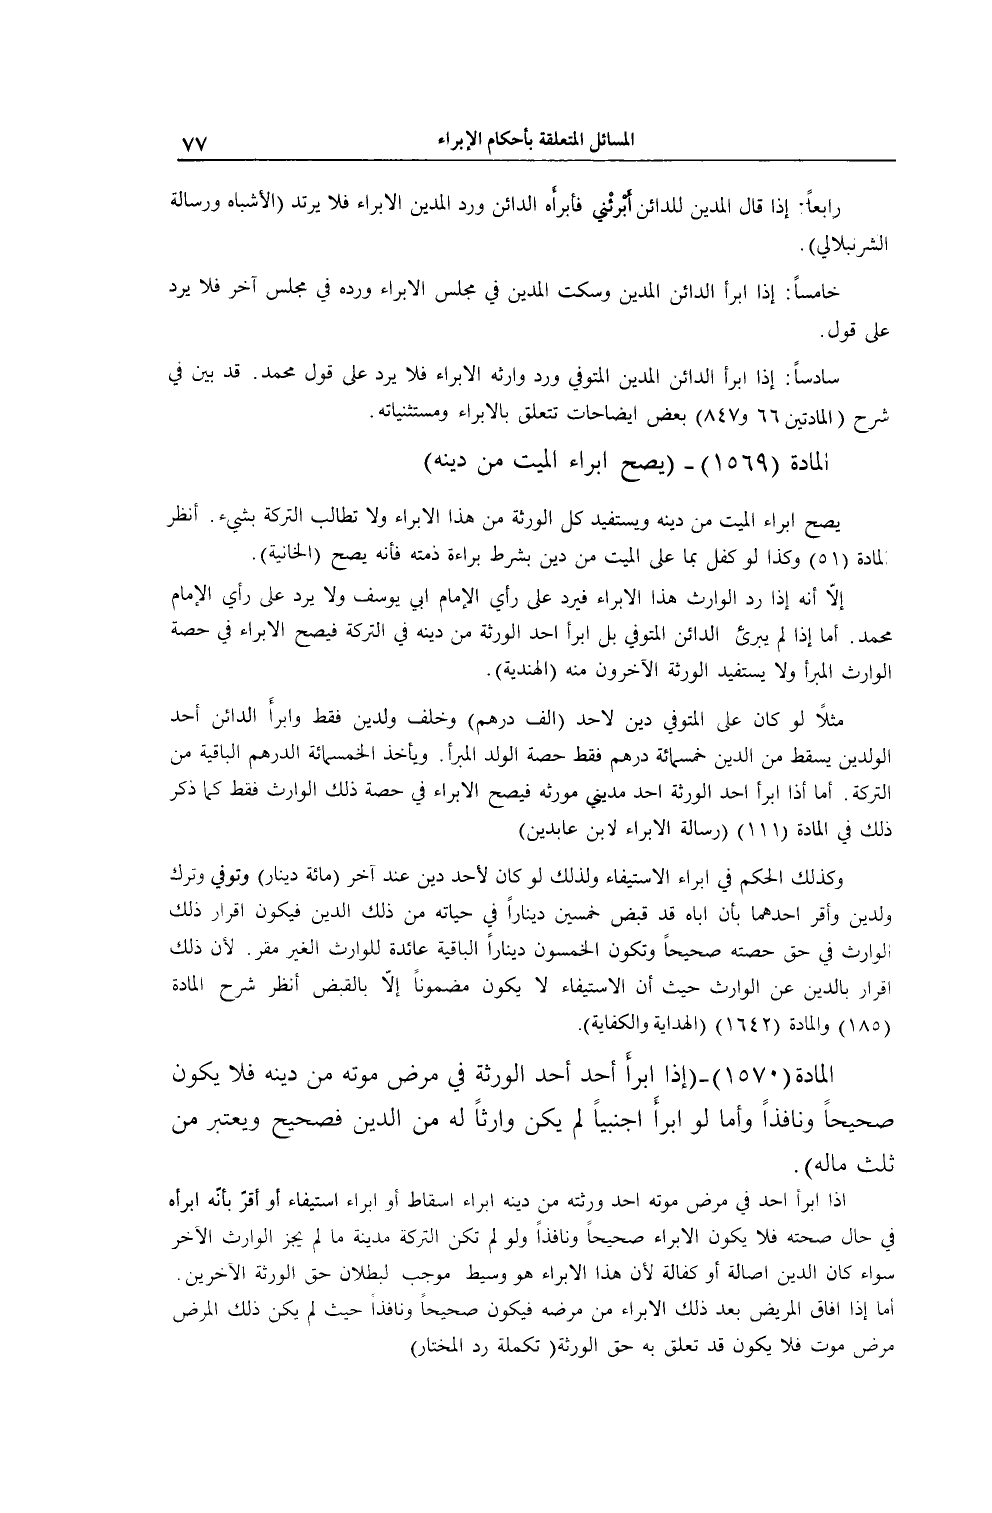 المسائل المتعلقة بأحكام الإبراء ٧٧
رابعاً: إذا قال المدين للدائن أَبْرِئْني فأبرأه الدائن ورد المدين الابراء فلا يرتد (الأشباه ورسالة
الشرنبلالي).
خامساً: إذا ابرأ الدائن المدين وسكت المدين في مجلس الابراء ورده في مجلس آخر فلا يرد
على قول.
سادساً: إذا ابرأ الدائن المدين المتوفي ورد وارثه الابراء فلا يرد على قول محمد. قد بين في
شرح (المادتين ٦٦ و٨٤٧) بعض ايضاحات تتعلق بالابراء ومستثنياته.
المادة (١٥٦٩) - (يصح ابراء الميت من دينه)
يصح ابراء الميت من دينه ويستفيد كل الورثة من هذا الابراء ولا تطالب التركة بشيء. أنظر
المادة (٥١) وكذا لو كفل بما على الميت من دين بشرط براءة ذمته فأنه يصح (الخانية).
إلّا أنه إذا رد الوارث هذا الابراء فيرد على رأي الإمام ابي يوسف ولا يرد على رأي الإمام
محمد. أما إذا لم يبرئ الدائن المتوفي بل ابرأ احد الورثة من دينه في التركة فيصح الابراء في حصة
الوارث المبرأ ولا يستفيد الورثة الآخرون منه (الهندية).
مثلًا لو كان على المتوفي دين لاحد (الف درهم) وخلف ولدين فقط وابرأ الدائن أحد
الولدين يسقط من الدين خمسمائة درهم فقط حصة الولد المبرأ. ويأخذ الخمسمائة الدرهم الباقية من
التركة. أما أذا ابرأ احد الورثة احد مديني مورثه فيصح الابراء في حصة ذلك الوارث فقط كما ذكر
ذلك في المادة (١١١) (رسالة الابراء لابن عابدين)
وكذلك الحكم في ابراء الاستيفاء ولذلك لو كان لأحد دين عند آخر (مائة دينار) وتوفي وترك
ولدين وأقر احدهما بأن اباه قد قبض خمسين ديناراً في حياته من ذلك الدين فيكون اقرار ذلك
الوارث في حق حصته صحيحاً وتكون الخمسون ديناراً الباقية عائدة للوارث الغير مقر. لأن ذلك
اقرار بالدين عن الوارث حيث أن الاستيفاء لا يكون مضموناً إلّا بالقبض أنظر شرح المادة
(١٨٥) والمادة (١٦٤٢) (الهداية والكفاية).
المادة (١٥٧٠)-(إذا ابرأ أحد أحد الورثة في مرض موته من دينه فلا يكون
صحيحاً ونافذاً وأما لو ابرأ اجنبياً لم يكن وارثاً له من الدين فصحيح ويعتبر من
ثلث ماله).
اذا ابرأ احد في مرض موته احد ورثته من دينه ابراء اسقاط أو ابراء استيفاء أو أقرّ بأنّه ابرأه
في حال صحته فلا يكون الابراء صحيحاً ونافذاً ولو لم تكن التركة مدينة ما لم يجز الوارث الآخر
سواء كان الدين اصالة أو كفالة لأن هذا الابراء هو وسيط موجب لبطلان حق الورثة الآخرين.
أما إذا افاق المريض بعد ذلك الابراء من مرضه فيكون صحيحاً ونافذاً حيث لم يكن ذلك المرض
مرض موت فلا يكون قد تعلق به حق الورثة( تكملة رد المختار)